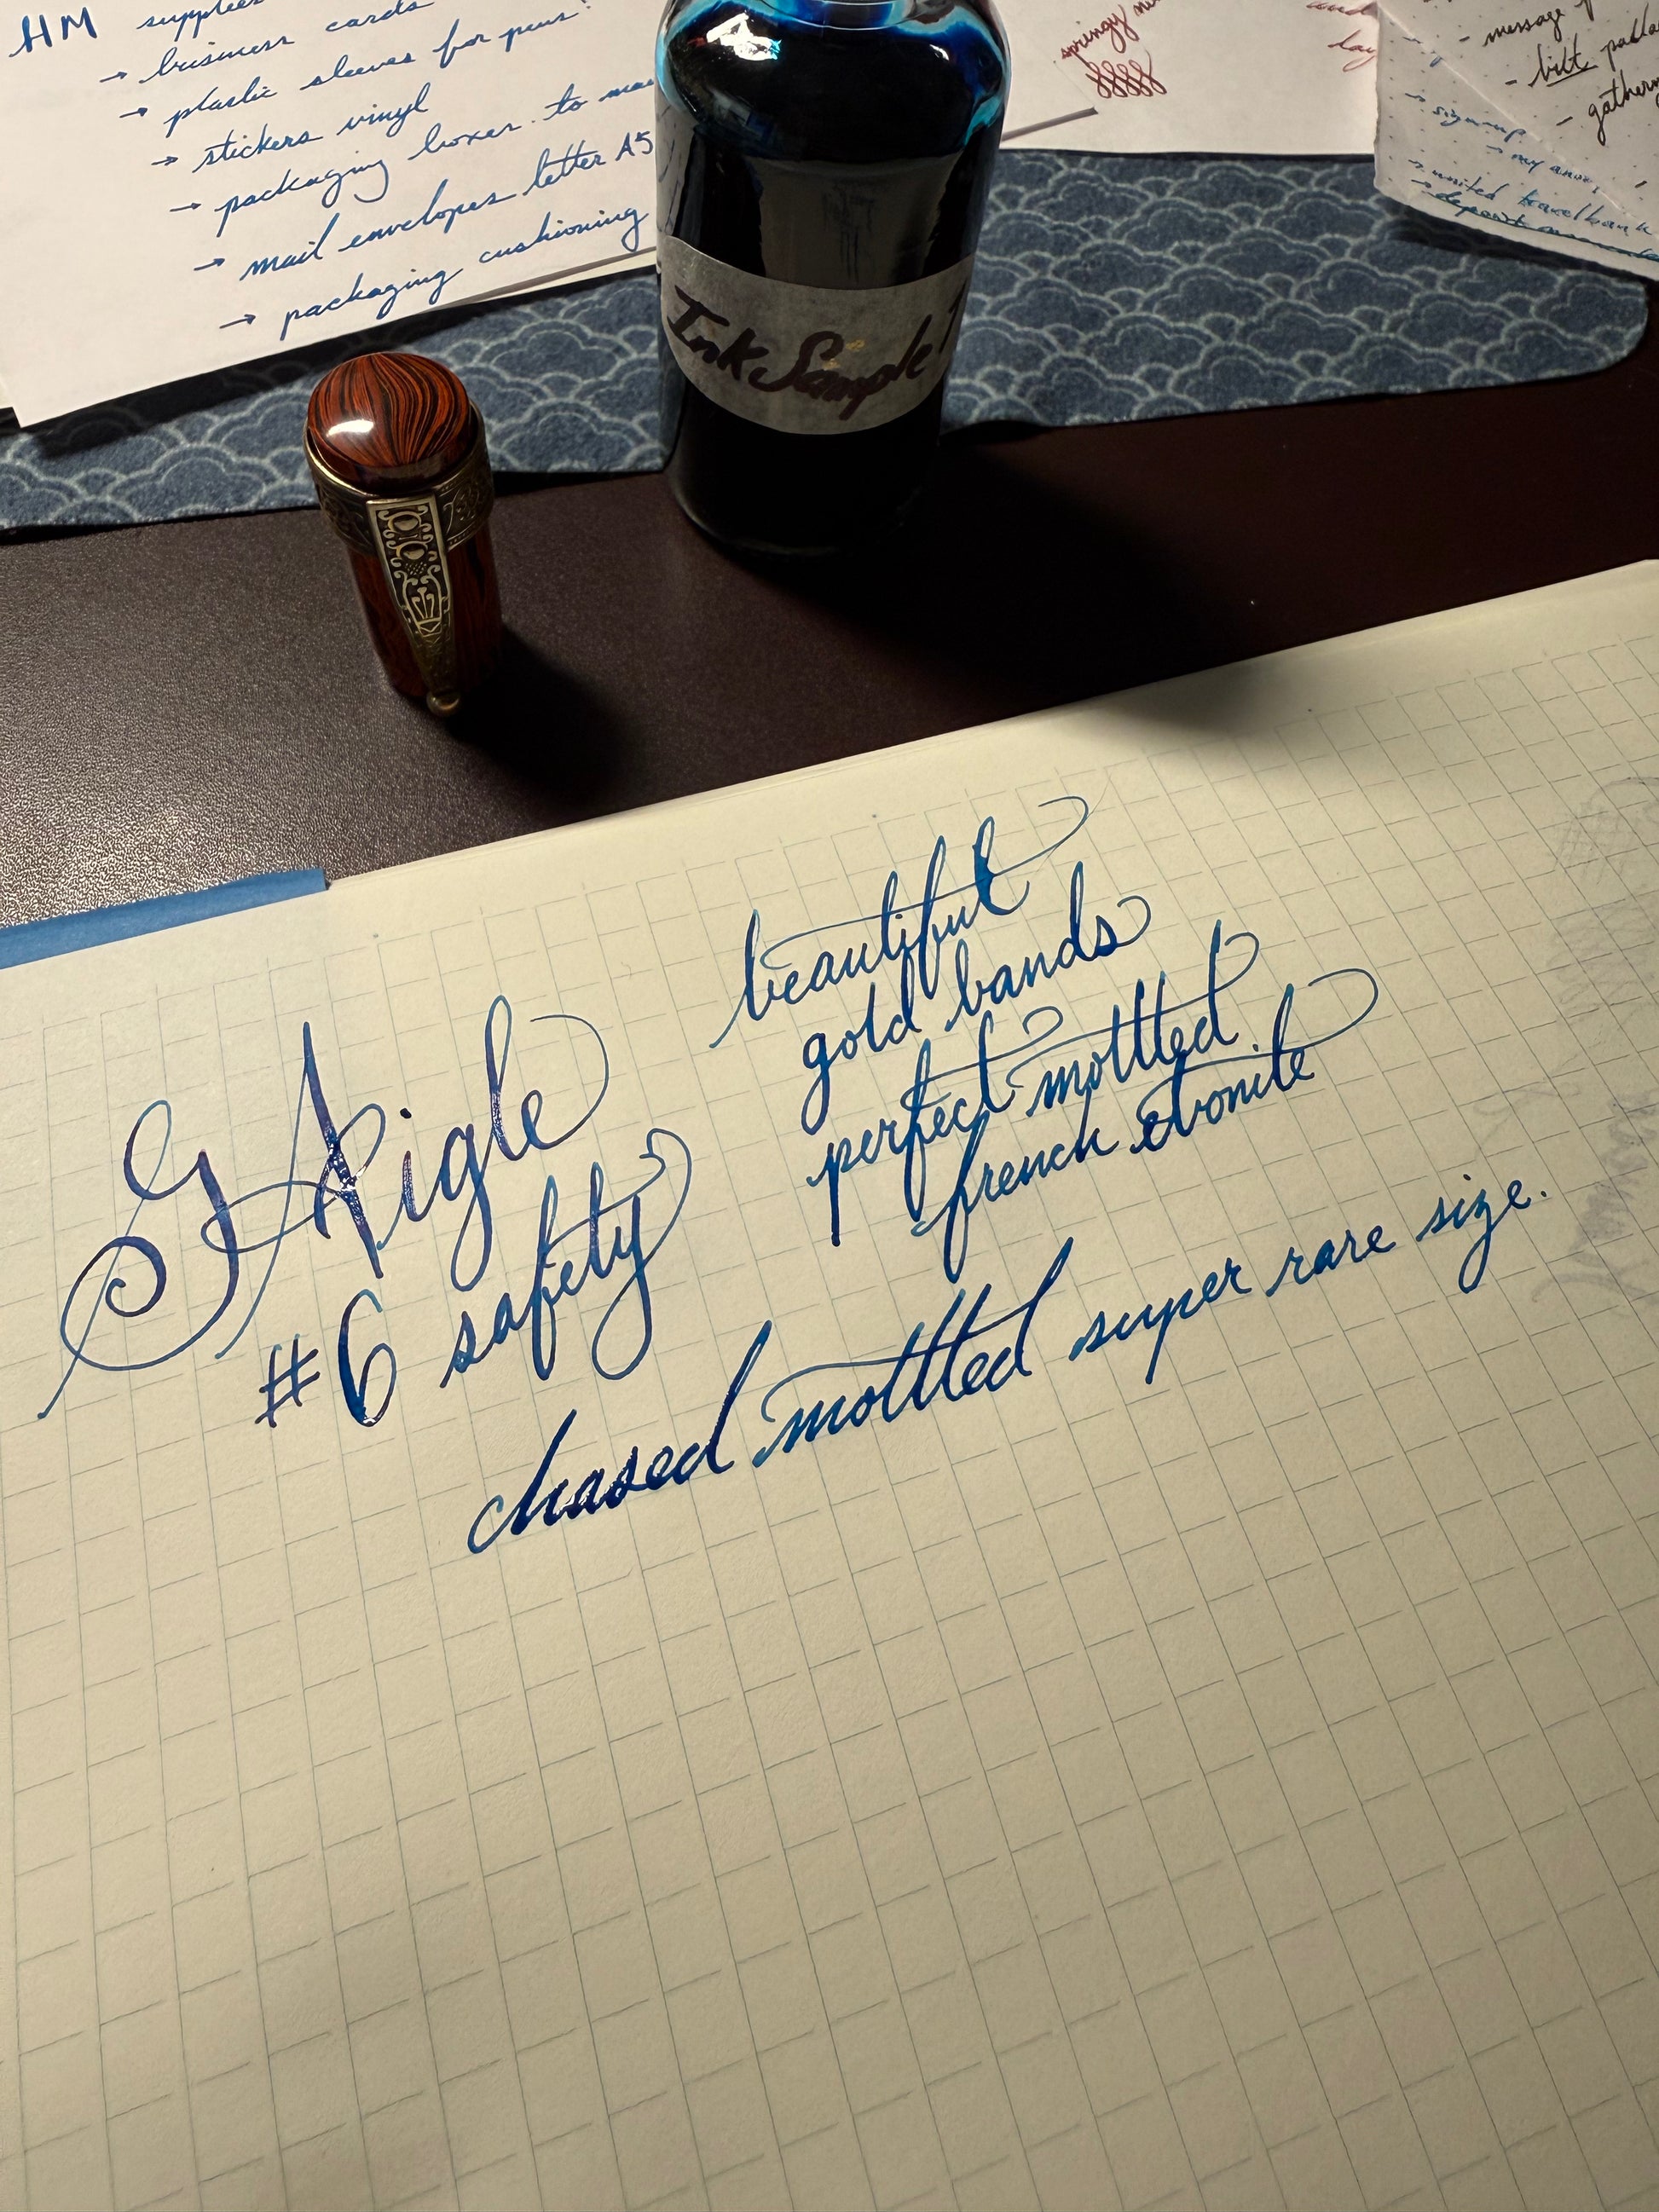 HM supplies
→ business cards
→ plastic sleeves for pens!
→ stickers vinyl
→ packaging boxes to
→ mail envelopes letter A5
→ packaging cushioning
Ink Sample
springy
and
day
- message
- bilt
- gathering
→ signup
→ my
→ united travelbank
→ deposit
G Aigle
#6 safety
beautiful
gold bands
perfect mottled
french ebonite
chased mottled super rare size.